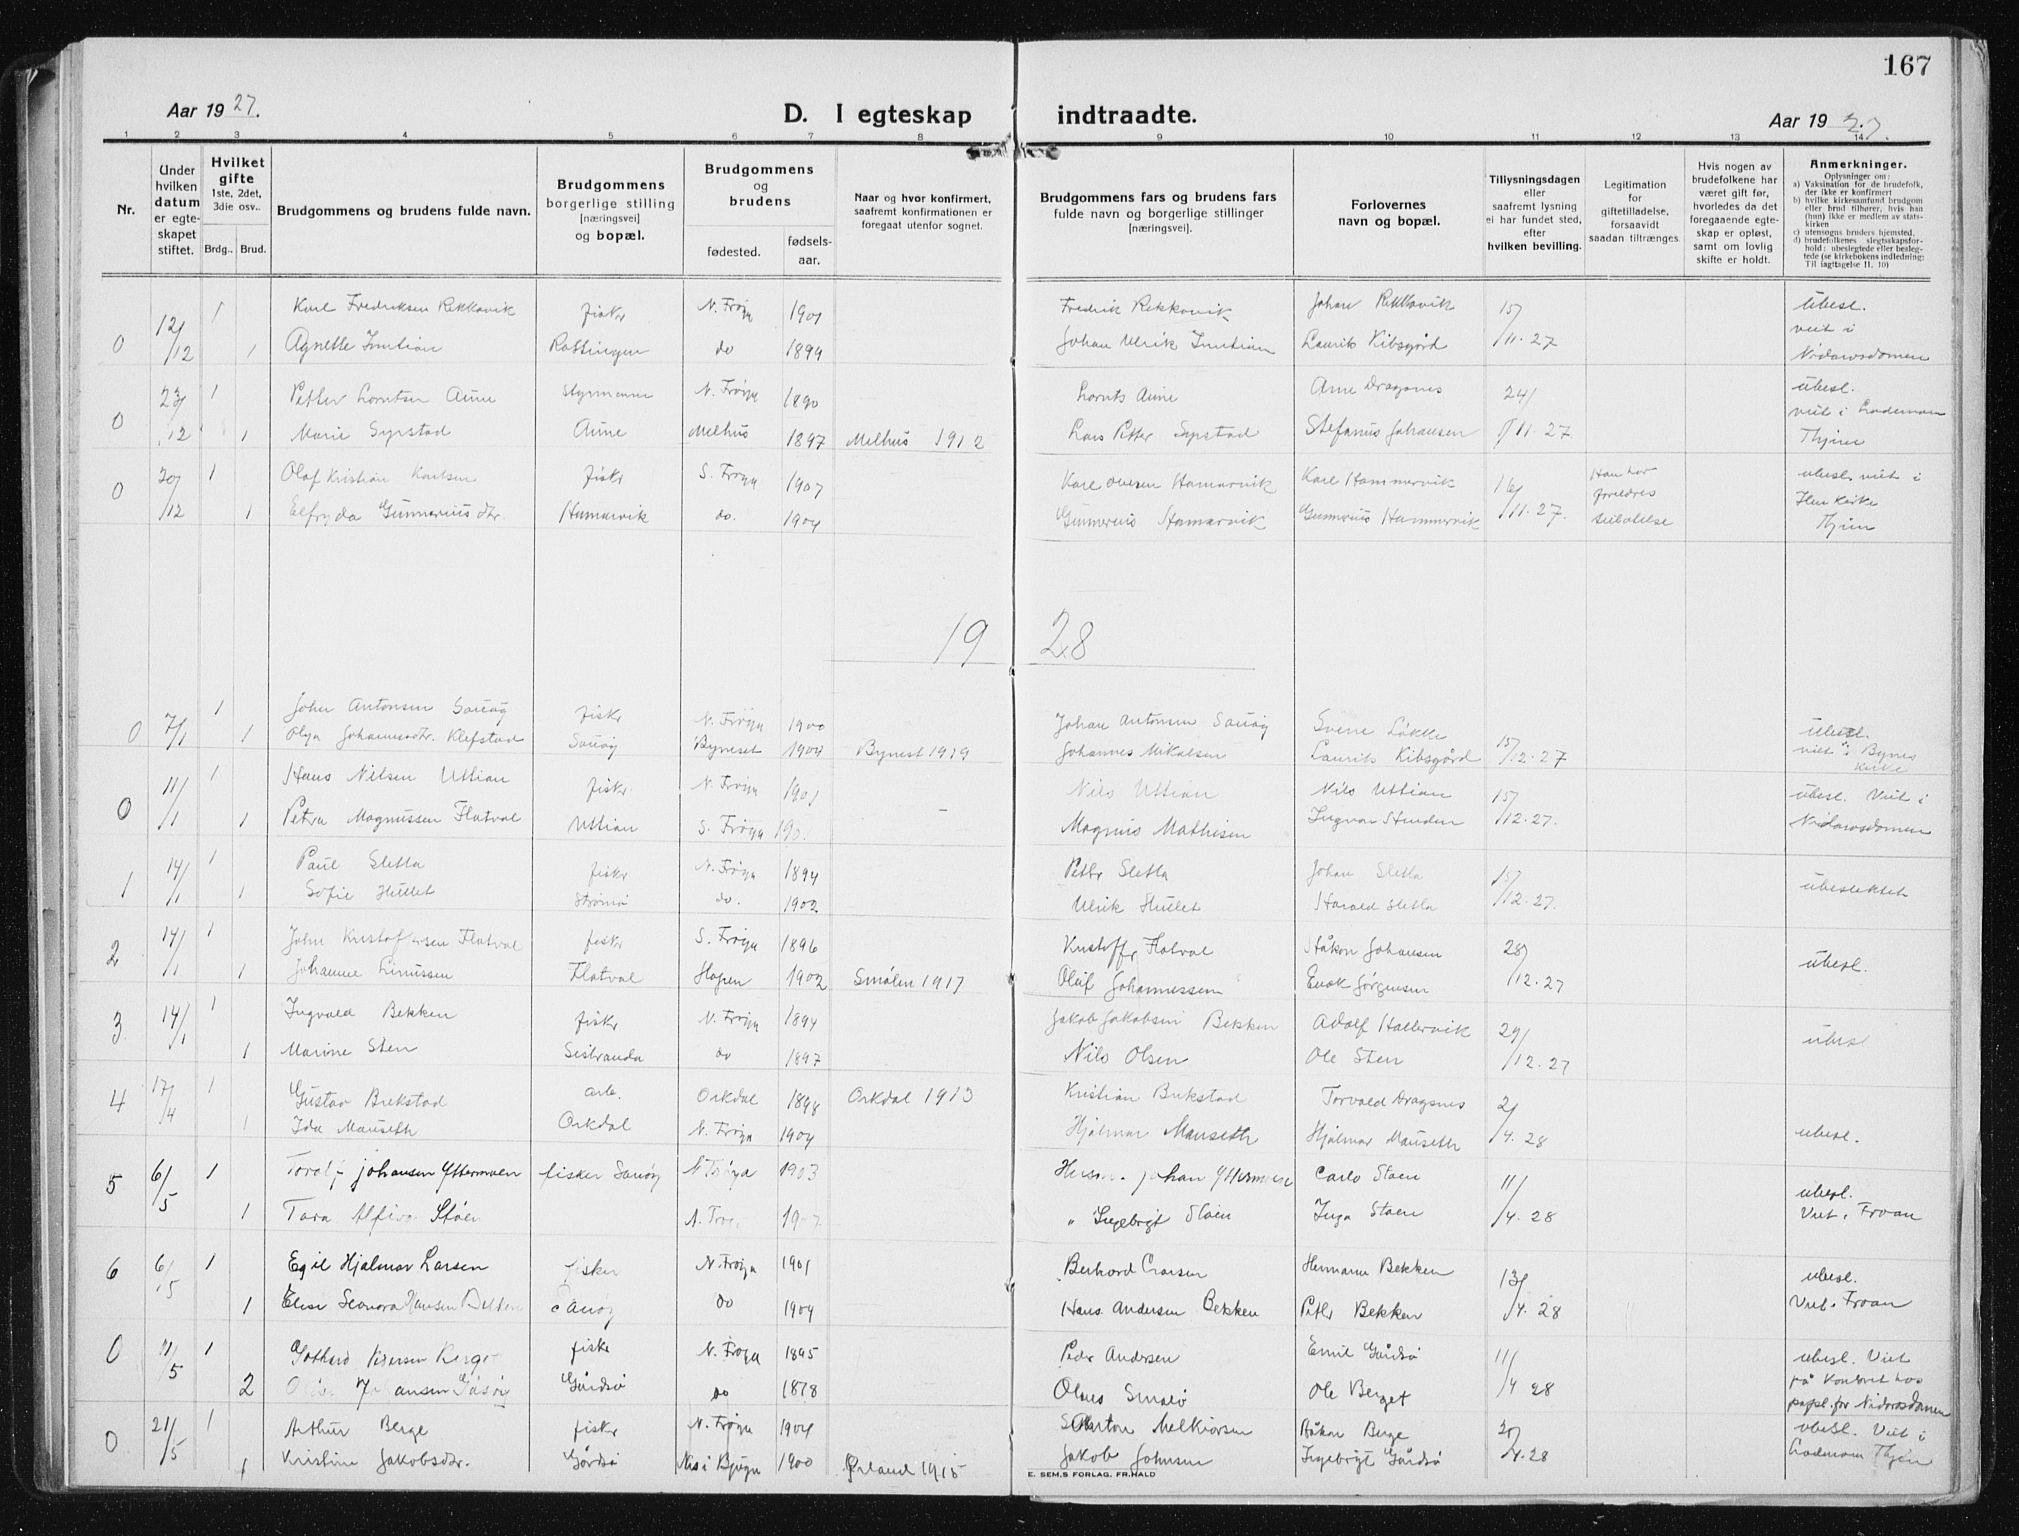 167
Aar 1927.
D. I egteskap indtraadte.
Aar 1927.
1 2 3 4 5 6 7 8 9 10 11 12 13 14
Nr.
Under hvilken datum er egteskapet stiftet.
Hvilket gifte 1ste, 2det, 3die osv..
Brdg.. Brud.
Brudgommens og brudens fulde navn.
Brudgommens borgerlige stilling [næringsvei] og bopæl.
Brudgommens og brudens
fødested. fødselsaar.
Naar og hvor konfirmert, saafremt konfirmationen er foregaat utenfor sognet.
Brudgommens fars og brudens fars fulde navn og borgerlige stillinger [næringsvei].
Forlovernes navn og bopæl.
Tillysningsdagen eller saafremt lysning ei har fundet sted, efter hvilken bevilling.
Legitimation for giftetilladelse, forsaavidt saadan tiltrænges.
Hvis nogen av brudefolkene har været gift før, hvorledes da det foregaaende egteskap er opløst, samt om lovlig skifte er holdt.
Anmerkninger.
Oplysninger om:
a) Vaksination for de brudefolk, der ikke er konfirmert
b) hvilke kirkesamfund brudgom eller brud tilhører, hvis han (hun) ikke er medlem av statskirken
c) utensogns bruders hjemsted,
d) brudefolkenes slegtsskapsforhold: ubeslegtede eller beslegtede (se kirkebokens indledning: Til iagttagelse II. 10)
0 12/12 1 Karl Fredriksen Rekkavik fisker N. Frøya 1901 Fredrik Rekkavik Johan Rekkavik 15/11.27 ubesl. viet i
1 Agnette do 1899 Johan Ulrik Laurits Kibsgård Nidarosdomen
0 23/12 1 Petter Lorntsen Aune Styrmann N. Frøya 1890 Lornts Aune Arne Dragsnes 24/11.27 ubesl.
1 Marie Syrstad Aune Melhus 1897 Melhus 1912 Lars Petter Syrstad Stefanus Johansen viet i Lademoen Thjem
0 20/12 1 Olaf Kristian Karlsen fisker S. Frøya 1907 Karl Hamarvik Karl Hammervik 16/11.27 Han har foreldres ubesl. viet i
1 Elfryda Gunnerius dtr. Hamarvik do. 1904 Gunnerius Hamarvik Gunnerius Hammervik tillatelse Ilen kirke Thjem
1928
0 7/1 1 John Antonsen Sauøy fisker N. Frøya 1900 Johan Antonsen Sauøy Svene Løkke 15/12.27 ubesl.
1 Olga Johannesdtr. Klefstad Sauøy Byneset 1904 Bynest 1919 Johannes Mikalsen Laurits Kibsgård viet i Bynes kirke
0 11/1 1 Hans Nilsen Uttian fisker N. Frøya 1901 Nils Uttian Nils Uttian 15/12.27. ubesl. Viet i
1 Petra Magnussen Flatval Uttian S. Frøya 190 - Magnus Mathisen Ingvar Nidarosdomen
1 14/1 1 Paul Sletta fisker N. Frøya 1894 Petter Sletta Johan Sletta 15/12.27. ubeslektet
1 Sofie Hullet Strømø do. 1902 Ulrik Hullet Harald Sletta
2 14/1 1 John Kristoffersen Flatval fisker S. Frøya 1896 Kristoffer Flatval Håkon Johansen 28/12.27 ubesl.
1 Johanne Linussen Flatval Hopen 1902 Smølen 1917 Oluf Johannessen Enok Jørgensen
3 14/1 1 Ingvald Bekken fisker N. Frøya 1894 Jakob Jakobsen Bekken Adolf Hallervik 29/12.27 ubesl
1 Marine Sten Sistranda do 1897 Nils Olsen Ole Sten
4 17/4 1 Gustav Brekstad arb. Orkdal 1898 Orkdal 1913 Kristian Brekstad Torvald Dragsnes 2/4.28 ubesl.
1 Ida Mauseth Orkdal N. Frøya 1904 Hjalmar Mauseth Hjalmar Mauseth
5 6/5 1 Toralf Johansen Yttermoen fisker Sauøy N Frøya 1903 Johan Yttermoen Carlo Støen 11/4.28 ubesl.
1 Tora Støen N. Frøya Ingebrigt Støen Inga Støen Viet i Froan
6 6/5 1 Egil Hjalmar Larsen fisker N. Frøya 1901 Larsen Hermann Bekken 13/4.28 ubesl.
1 Elise Leonora Hansen Bekken Sauøy do 1904 Hans Andersen Bekken Petter Bekken Viet i Froan
0 /5 1 Gothard fisker N. Frøya 1895 Peder Andersen Emil Gårdsø 11/4 28 ubesl. Viet
2 Johansen Gårdsø do 1878 Olaus Smalø Ole Berget på kontoret hos for Nidarosdomen
0 21/5 1 Arthur Berge fisker N. Frøya 1904 Anton Melkiorsen Håkon Berge /4.28 ubesl. Viet i
1 Kristine Jakobsdtr. Gårdsø Nes i Bjugn 1900 Ørland 1915 Jakob Johnsen Ingebrigt Gårdsø Lademoen Thjem
E. SEM,S FORLAG, FR.HALD